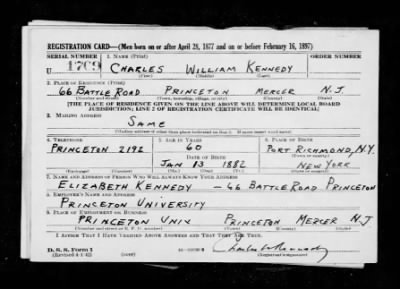 REGISTRATION CARD—(Men born on or after April 28, 1877 and on or before February 16, 1897)
SERIAL NUMBER 1. NAME (Print) ORDER NUMBER
U 1709 CHARLES WILLIAM KENNEDY
(First) (Middle) (Last)
2. PLACE OF RESIDENCE (Print)
66 BATTLE ROAD PRINCETON MERCER N.J.
(Number and street) (Town, township, village, or city) (County) (State)
[THE PLACE OF RESIDENCE GIVEN ON THE LINE ABOVE WILL DETERMINE LOCAL BOARD
JURISDICTION; LINE 2 OF REGISTRATION CERTIFICATE WILL BE IDENTICAL]
3. MAILING ADDRESS
SAME
(Mailing address if other than place indicated on line 2. If same insert word same)
4. TELEPHONE 5. AGE IN YEARS 6. PLACE OF BIRTH
PRINCETON 2192 60 PORT RICHMOND, N.Y.
DATE OF BIRTH (Town or county)
JAN 13 1882 NEW YORK
(Exchange) (Number) (Mo.) (Day) (Yr.) (State or country)
7. NAME AND ADDRESS OF PERSON WHO WILL ALWAYS KNOW YOUR ADDRESS
ELIZABETH KENNEDY — 66 BATTLE ROAD PRINCETON
8. EMPLOYER'S NAME AND ADDRESS
PRINCETON UNIVERSITY
9. PLACE OF EMPLOYMENT OR BUSINESS
PRINCETON UNIV PRINCETON MERCER N.J.
(Number and street or R. F. D. number) (Town) (County) (State)
I AFFIRM THAT I HAVE VERIFIED ABOVE ANSWERS AND THAT THEY ARE TRUE.
D. S. S. Form 1
(Revised 4-1-42) (over) Charles W Kennedy